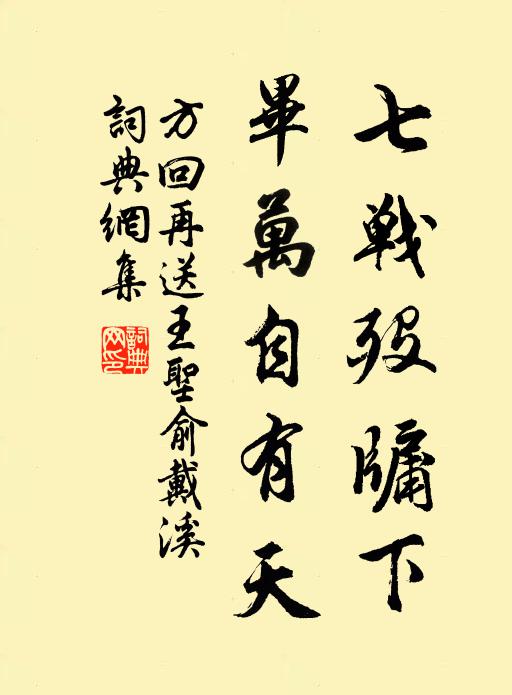 七戰歿牖下
畢萬自有天
方回再送王聖俞戴溪
詞典網集
詞典網印